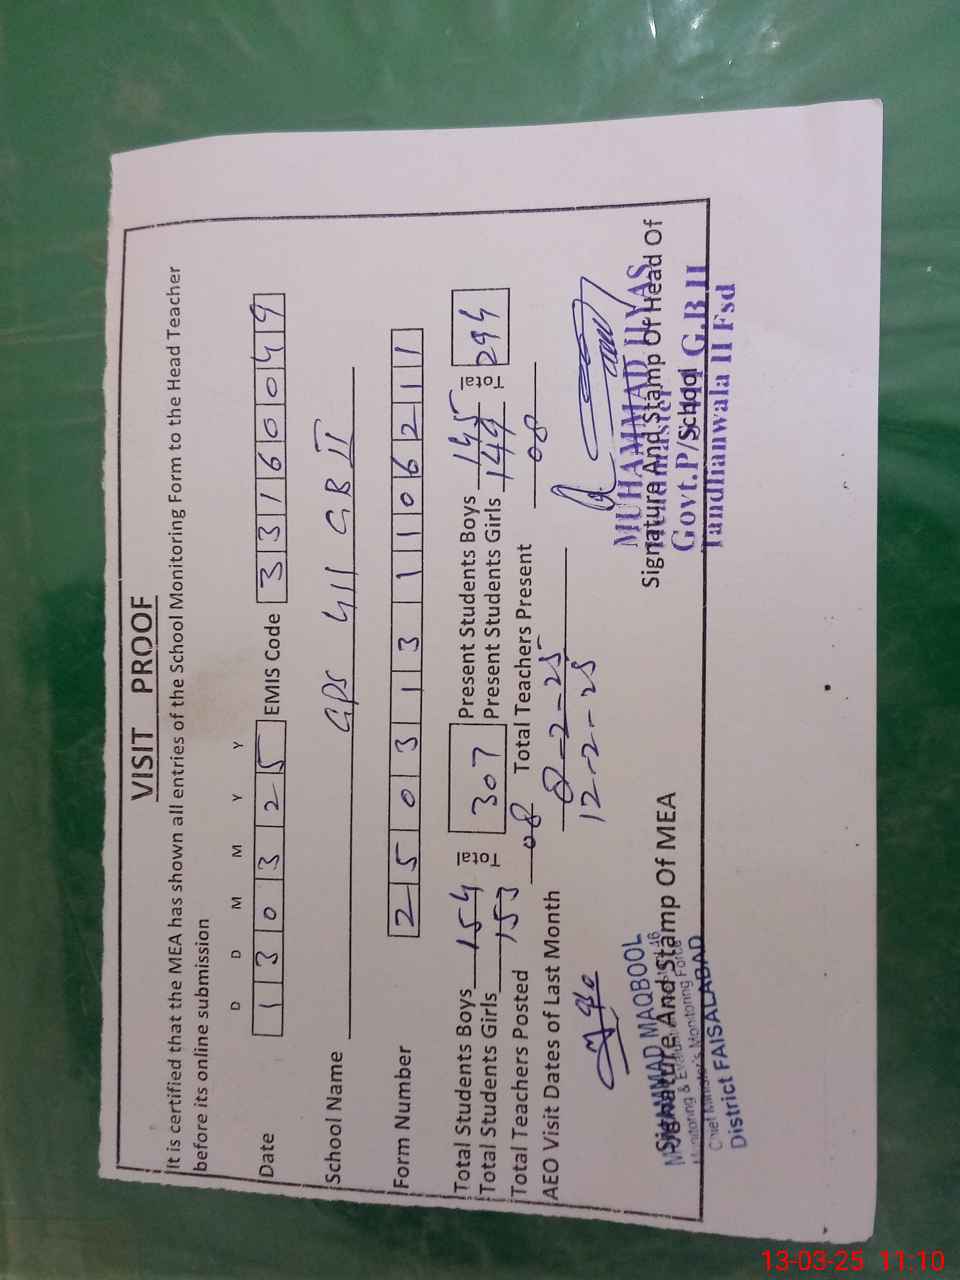 VISIT PROOF
It is certified that the MEA has shown all entries of the School Monitoring Form to the Head Teacher
before its online submission
D D M M Y Y
Date 1 3 0 3 2 5 EMIS Code 3 3 1 6 0 0 4 9
School Name GPS 411 GB II
Form Number 2 5 0 3 1 3 1 1 0 6 2 1 1
Total Students Boys 154 Total 307 Present Students Boys 145 Total 294
Total Students Girls 153 Present Students Girls 149
Total Teachers Posted 08 Total Teachers Present 08
AEO Visit Dates of Last Month 8-2-25
12-2-25
Signature And Stamp Of MEA
MUHAMMAD MAQBOOL
Monitoring & Evaluation
Chief Minister's Monitoring Force
District FAISALABAD
Signature And Stamp Of Head Of
School
MUHAMMAD ILYAS
Govt.P/S G.B II
Tandlianwala II Fsd
13-03-25 11:10